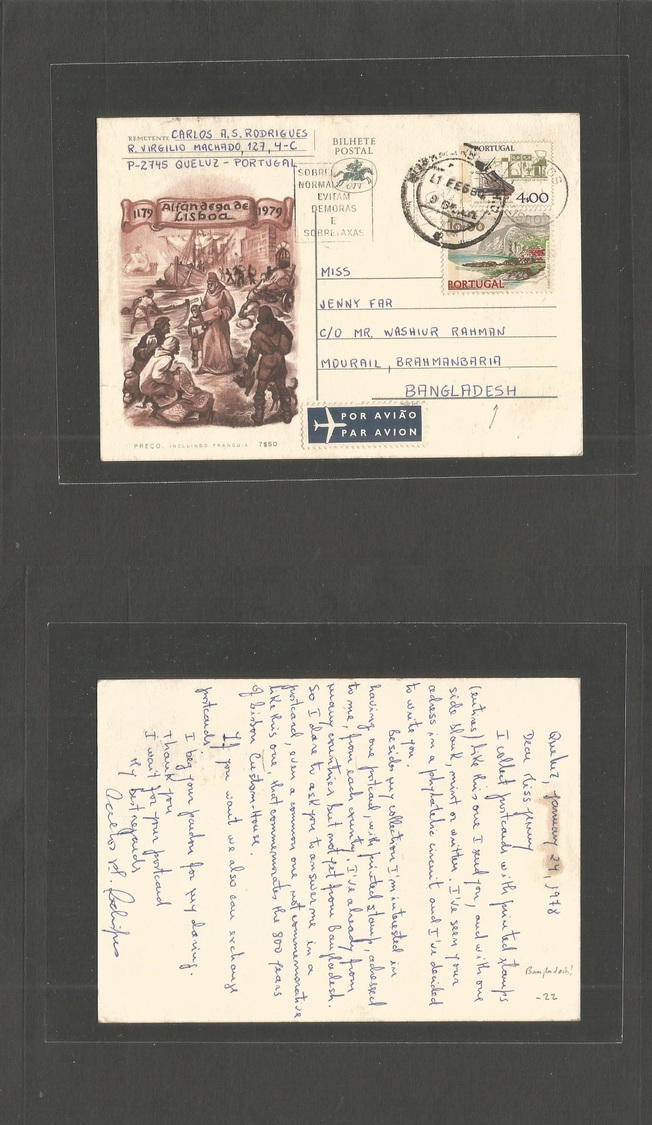 REMETENTE CARLOS A.S. RODRIGUES
R. VIRGILIO MACHADO, 127, 4-C
P-2745 QUELUZ - PORTUGAL
BILHETE
POSTAL
CTT
SOBRE
NORMAL
EVITAM
DEMORAS
E
SOBRETAXAS
PORTUGAL
4.00
10.00
PORTUGAL
1179 Alfândega de Lisboa 1979
MISS
JENNY FAR
C/O MR. WASHIUR RAHMAN
MOURAIL, BRAHMANBARIA
BANGLADESH
POR AVIÃO
PAR AVION
PREÇO, INCLUINDO FRANQUIA 7$50
Queluz, January 24, 1978
Dear Miss Jenny
I collect postcards with printed stamps
(entires) like this one I send you, and with one
side blank, mint or written. I've seen your
adress in a phylatelic circuit and I've decided
to write you.
Beside my collection I'm interested in
having one postcard, with printed stamp, adressed
to me, from each country. I've already from
many countries but not yet from Bangladesh.
So I dare to ask you to answer me in a
postcard, even a common one not commemorative
like this one, that commemorates the 800 years
of Lisbon Custom-House.
If you want we also can exchange
postcards.
I beg your pardon for my daring.
Thank you
I wait for your postcard
My best regards
Bangladesh!
-22